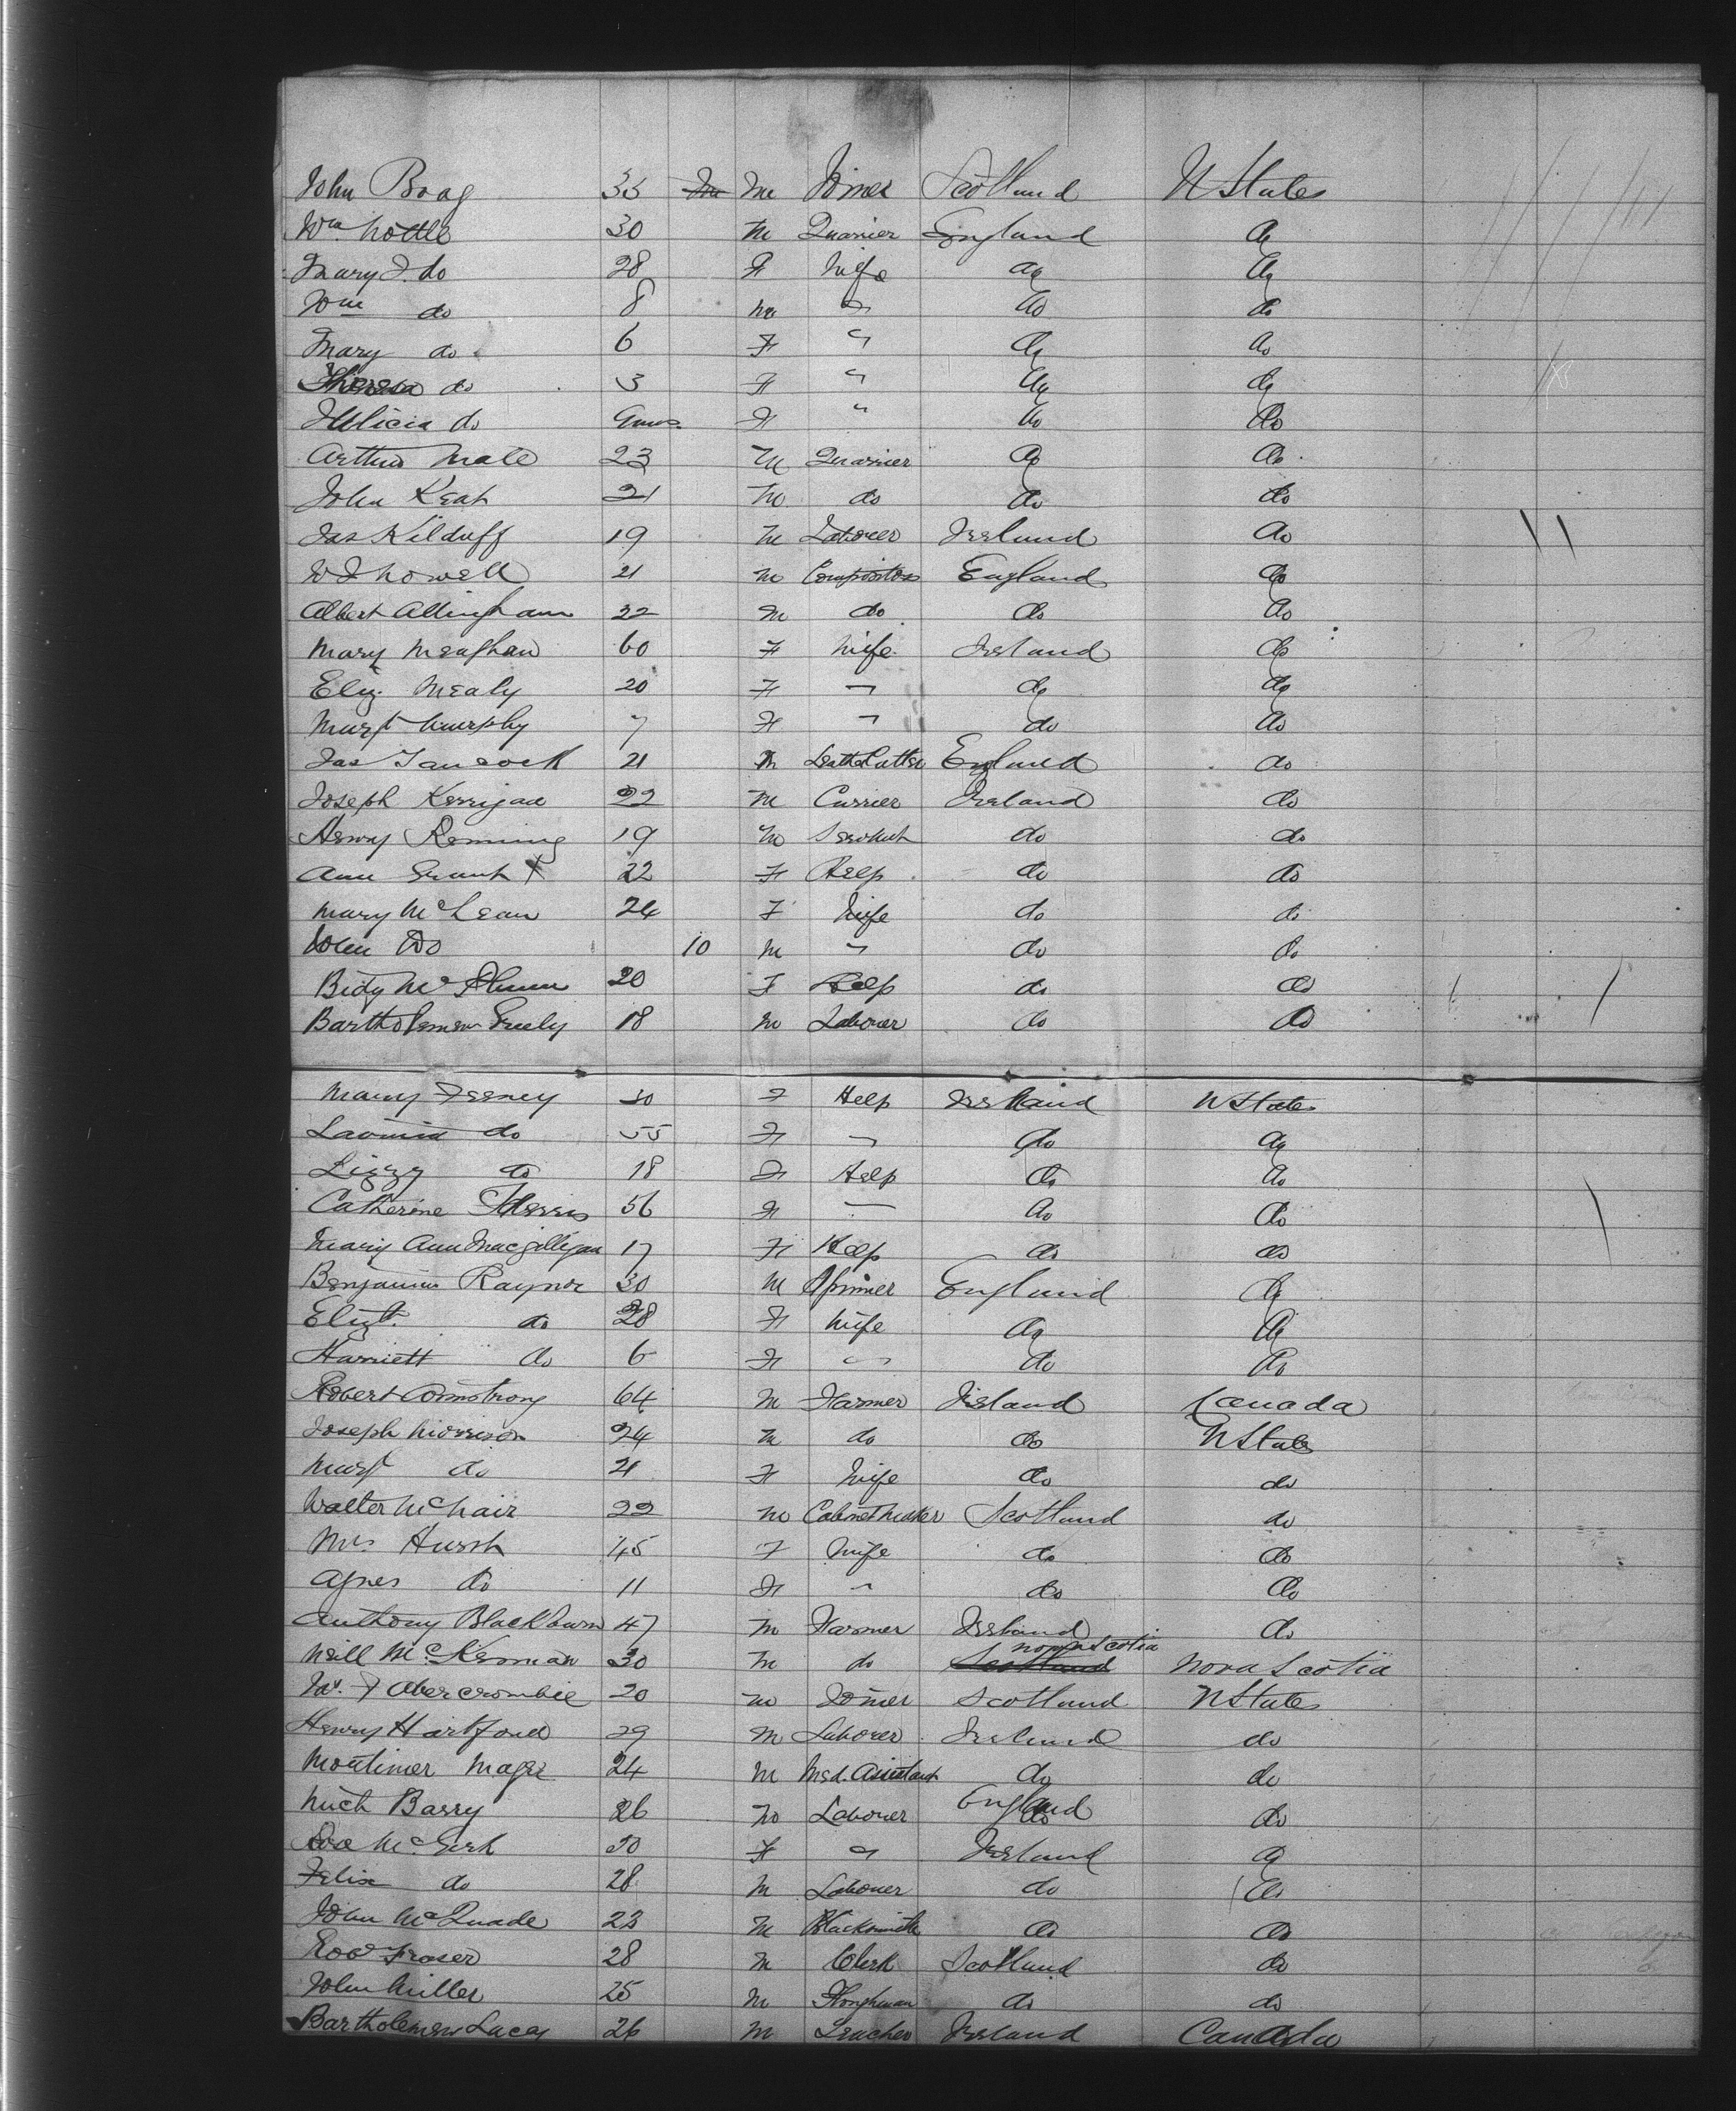 John Boag 35 M M Joiner Scotland U States
Wm Nottle 30 M Quarrier England do
Mary J. do 28 F Wife do do
Wm do 8 M " do do
Mary do 6 F " do do
Theresa do 3 F " do do
Felicia do 9 mos. F " do do
Arthur Male 23 M Quarrier do do
John Keat 21 M do do do
Jas Kilduff 19 M Laborer Ireland do
W J Nowell 21 M Compositor England do
Albert Allingham 22 M do do do
Mary Meaghan 60 F Wife Ireland do
Eliz. Mealy 20 F " do do
Margt Murphy 7 F " do do
Jas 21 M Leather Cutter England do
Joseph Kerrigan 22 M Currier Ireland do
Henry 19 M Servant do do
Ann Grant X 22 F Help do do
Mary McLean 24 F Wife do do
John Do 10 M " do do
Bidy Mc 20 F Help do do
Bartholemew Greely 18 M Laborer do do
Mary Feeney 30 F Help Ireland U States
do 55 F " do do
Lizzy do 18 F Help do do
Catherine 56 F — do do
Mary Ann Macgilligan 17 F Help do do
Benjamin Raynor 30 M Spinner England do
Elizt. do 28 F Wife do do
Harriett do 6 F " do do
Robert Armstrong 64 M Farmer Ireland Canada
Joseph Morrison 24 M do do U States
Margt do 21 F Wife do do
Walter McNair 22 M Cabinet Maker Scotland do
Mrs Hursh 45 F Wife do do
Agnes do 11 F " do do
Anthony Blackburn 47 M Farmer Ireland do
Neill McKerman 30 M do Scotland Nova Scotia Nova Scotia
F Abercrombie 20 M Joiner Scotland U States
Henry Hartford 29 M Laborer Ireland do
Mortimer Magee 24 M Med. Assistant do do
Mich Barry 26 M Laborer England do do
McGirk 30 F " Ireland do
Felix do 28 M Laborer do do
John McQuade 23 M Blacksmith do do
Robt Fraser 28 M Clerk Scotland do
John Miller 25 M Ploughman do do
Bartholemew Lacey 26 M Teacher Ireland Canada